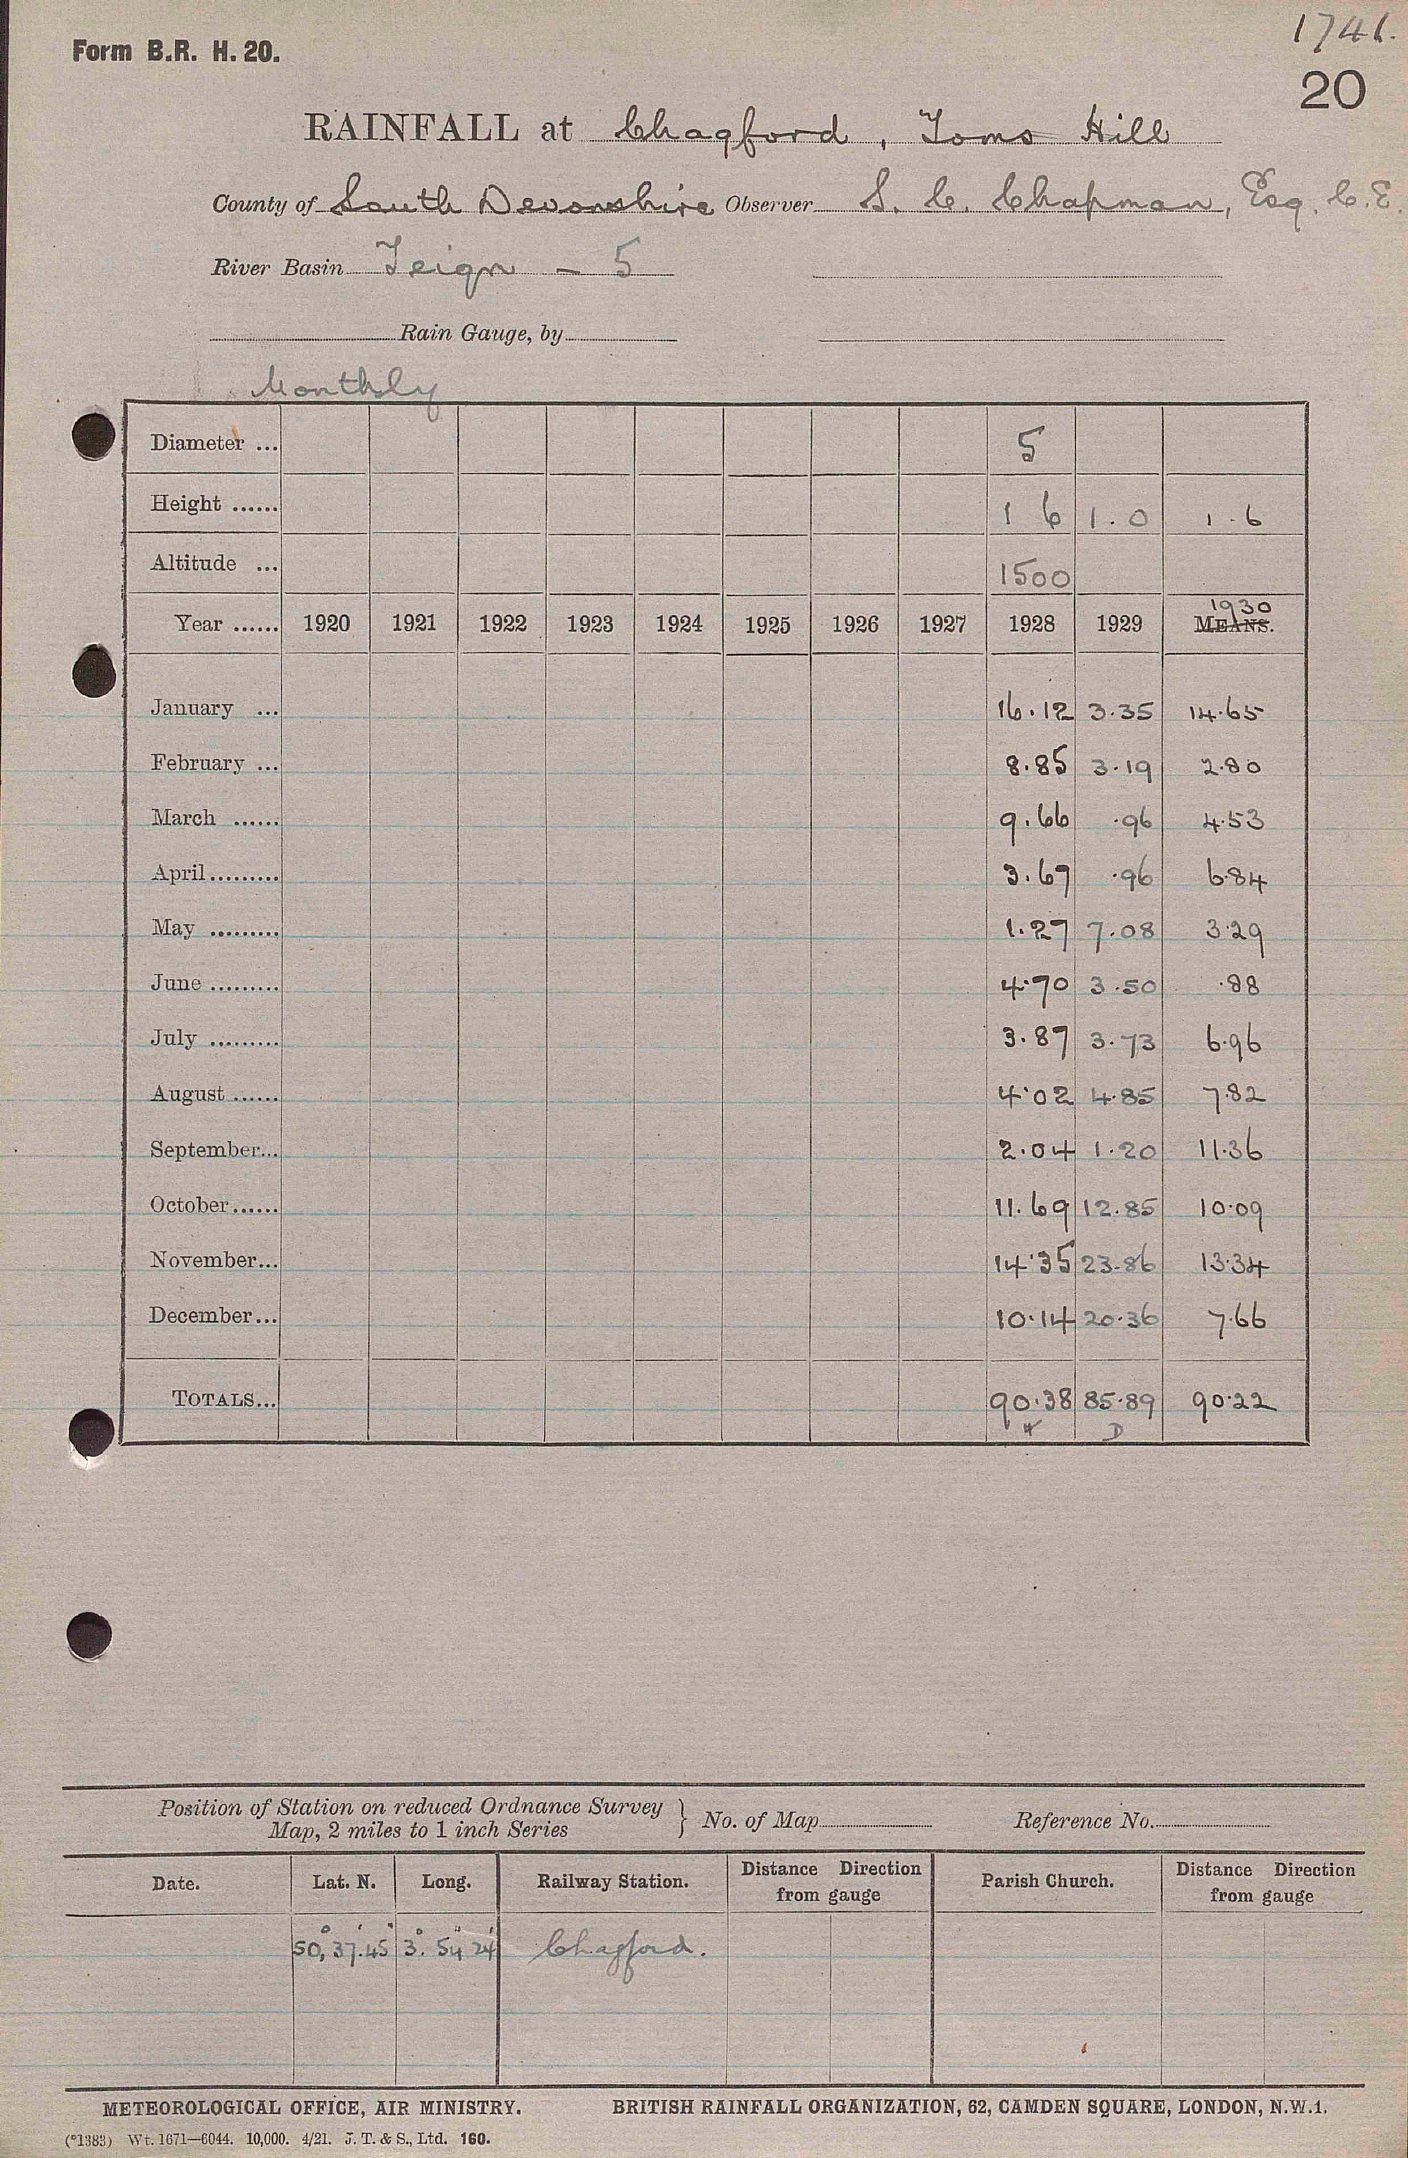 1741.
Form B.R. H. 20.
20
RAINFALL at Chagford, Toms Hill
County of South Devonshire Observer S. C. Chapman, Esq. C.E.
River Basin Teign - 5
Rain Gauge, by
Monthly
Diameter ... 5
Height ...... 1 6 1.0 1.6
Altitude ... 1500
1930
Year ...... 1920 1921 1922 1923 1924 1925 1926 1927 1928 1929 MEANS.
January ... 16.12 3.35 14.65
February ... 8.85 3.19 2.80
March ...... 9.66 .96 4.53
April ......... 3.67 .96 6.84
May ......... 1.27 7.08 3.29
June ......... 4.70 3.50 .88
July ......... 3.87 3.73 6.96
August ...... 4.02 4.85 7.82
September... 2.04 1.20 11.36
October ...... 11.69 12.85 10.09
November... 14.35 23.86 13.34
December... 10.14 20.36 7.66
TOTALS... 90.38 85.89 90.22
D
Position of Station on reduced Ordnance Survey
Map, 2 miles to 1 inch Series } No. of Map Reference No.
Date. Lat. N. Long. Railway Station. Distance Direction from gauge Parish Church. Distance Direction from gauge
50° 37' 45" 3° 54" 24' Chagford.
METEOROLOGICAL OFFICE, AIR MINISTRY. BRITISH RAINFALL ORGANIZATION, 62, CAMDEN SQUARE, LONDON, N.W.1.
(*1383) Wt. 1671—6044. 10,000. 4/21. J. T. & S., Ltd. 160.